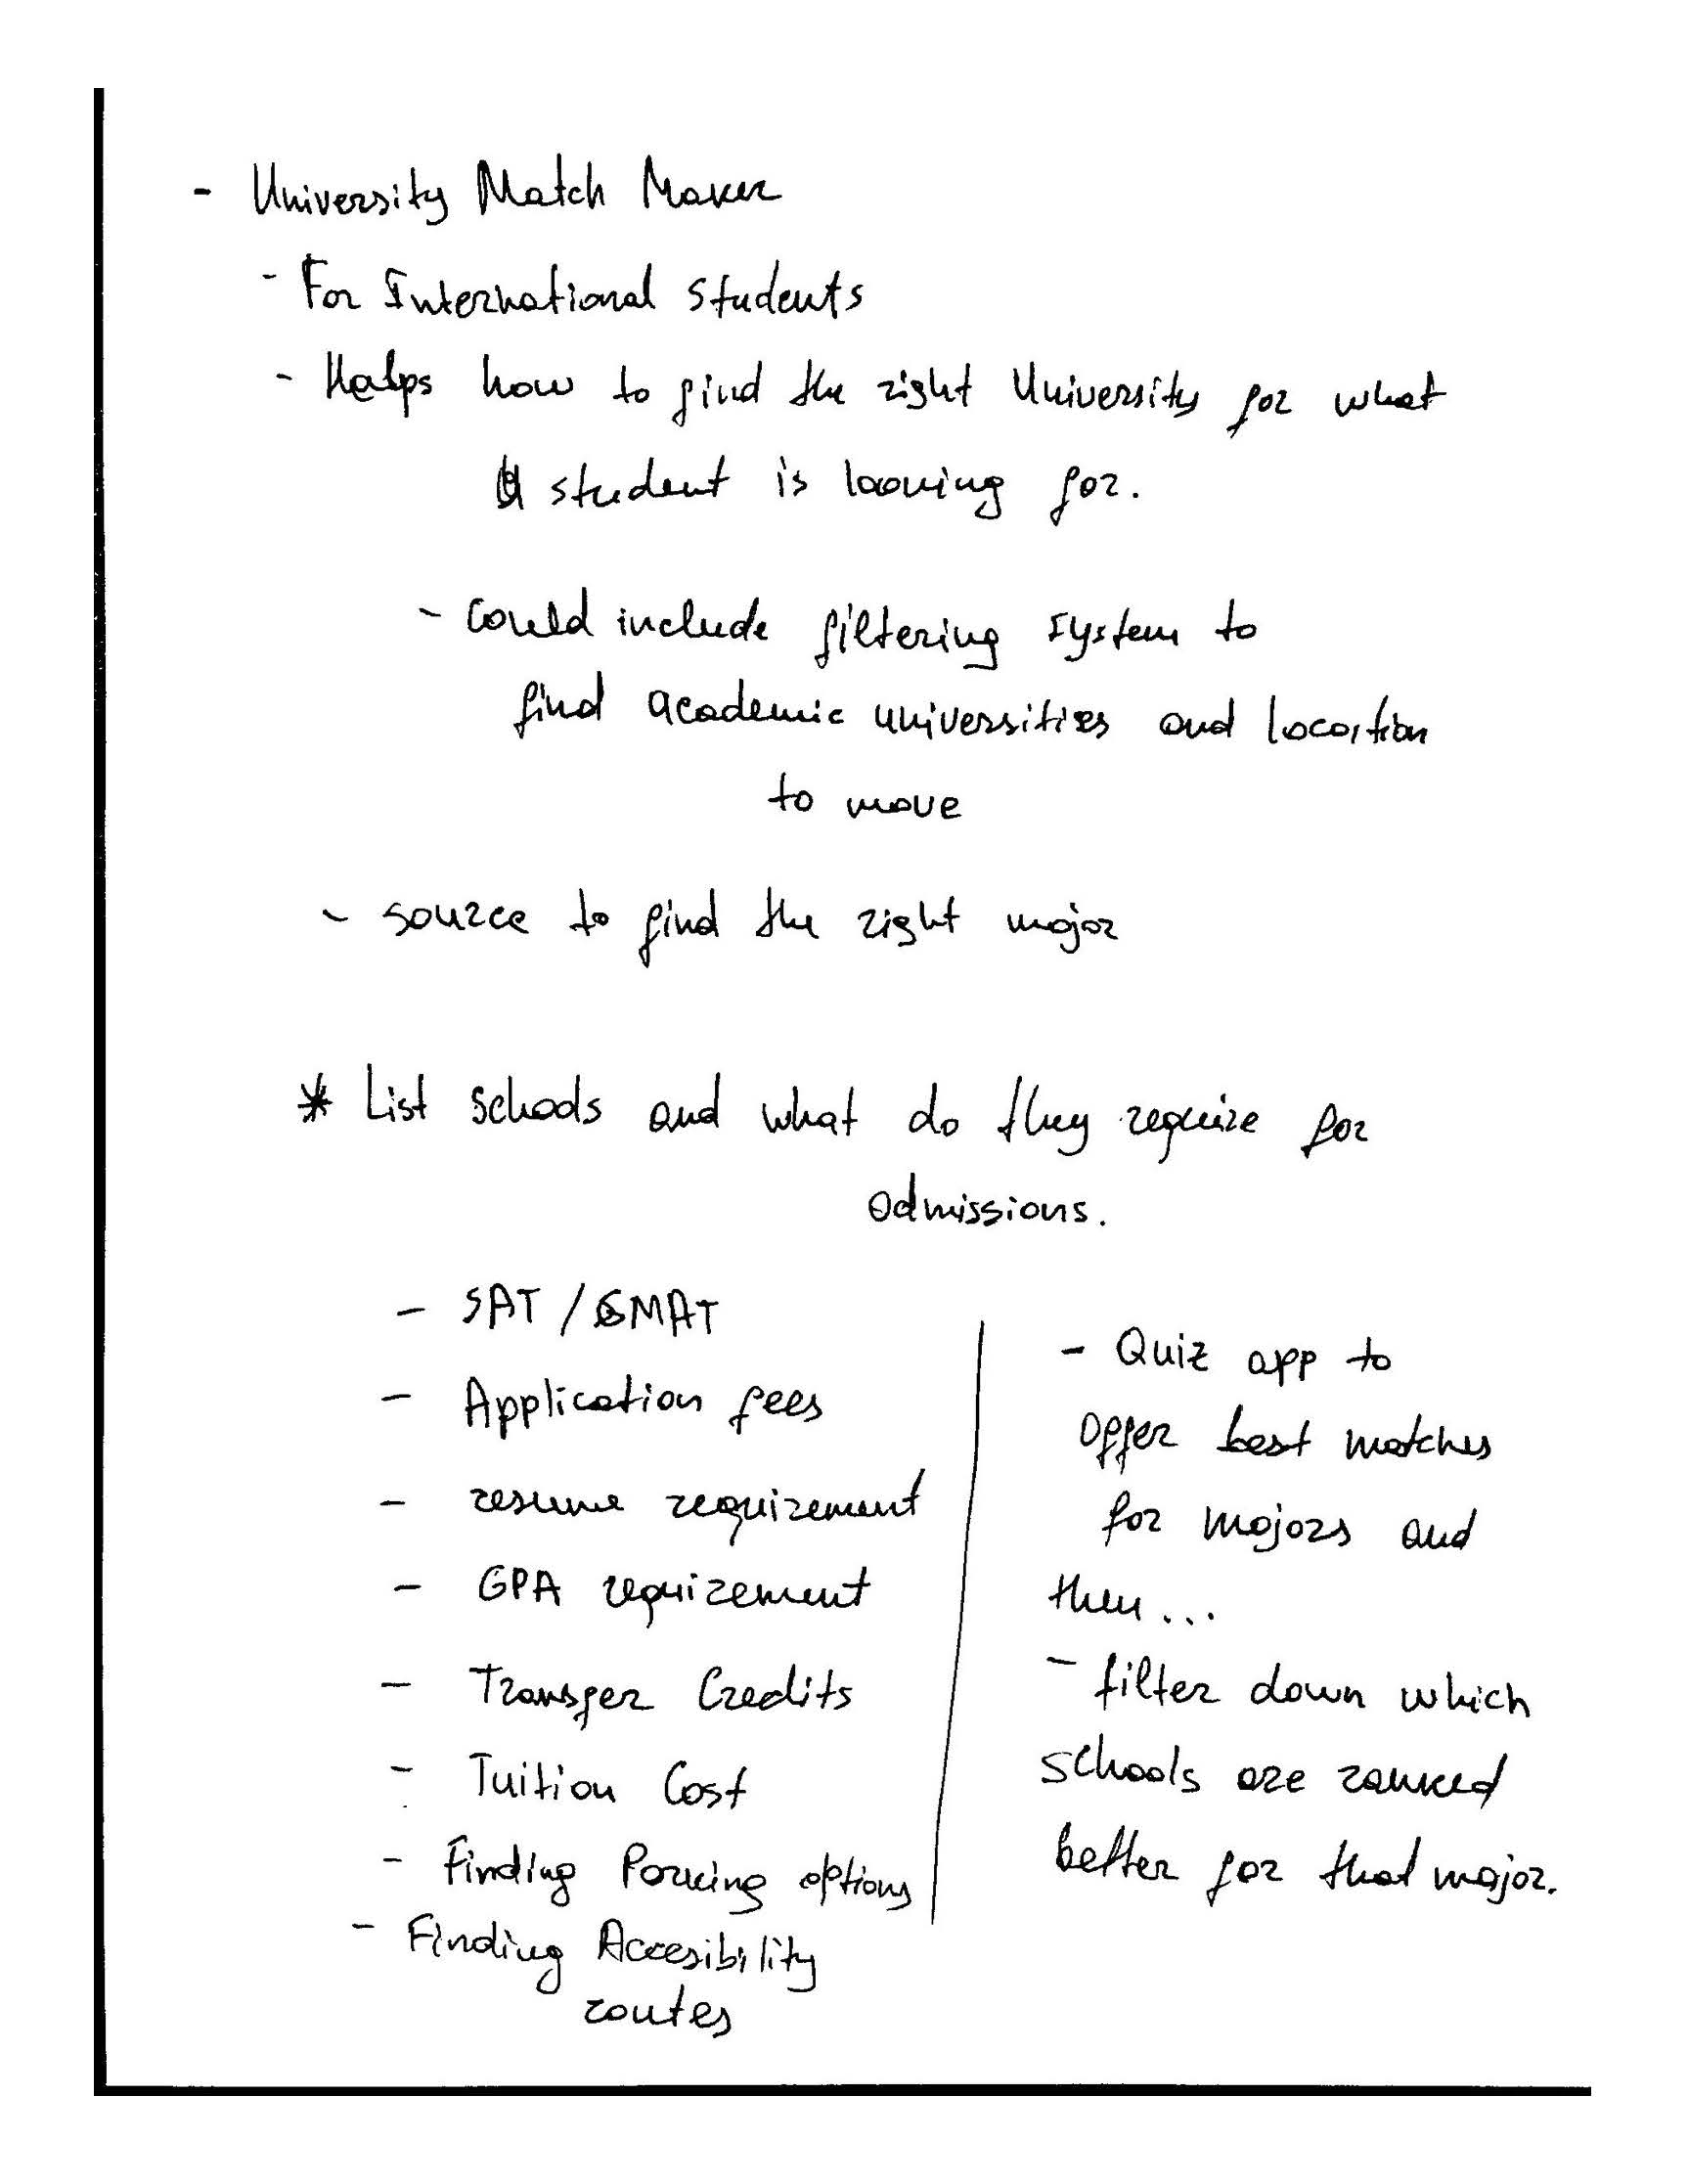 - University Match Maker
- For International Students
- Helps how to find the right University for what
student is looking for.
- Could include filtering system to
find academic universities and location
to move
- source to find the right major
* List schools and what do they require for
admissions.
- SAT / GMAT
- Application fees
- resume requirement
- GPA requirement
- Transfer Credits
- Tuition Cost
- Finding Parking options
- Finding Accesibility
routes
- Quiz app to
offer best matches
for majors and
then...
- filter down which
schools are ranked
better for that major.